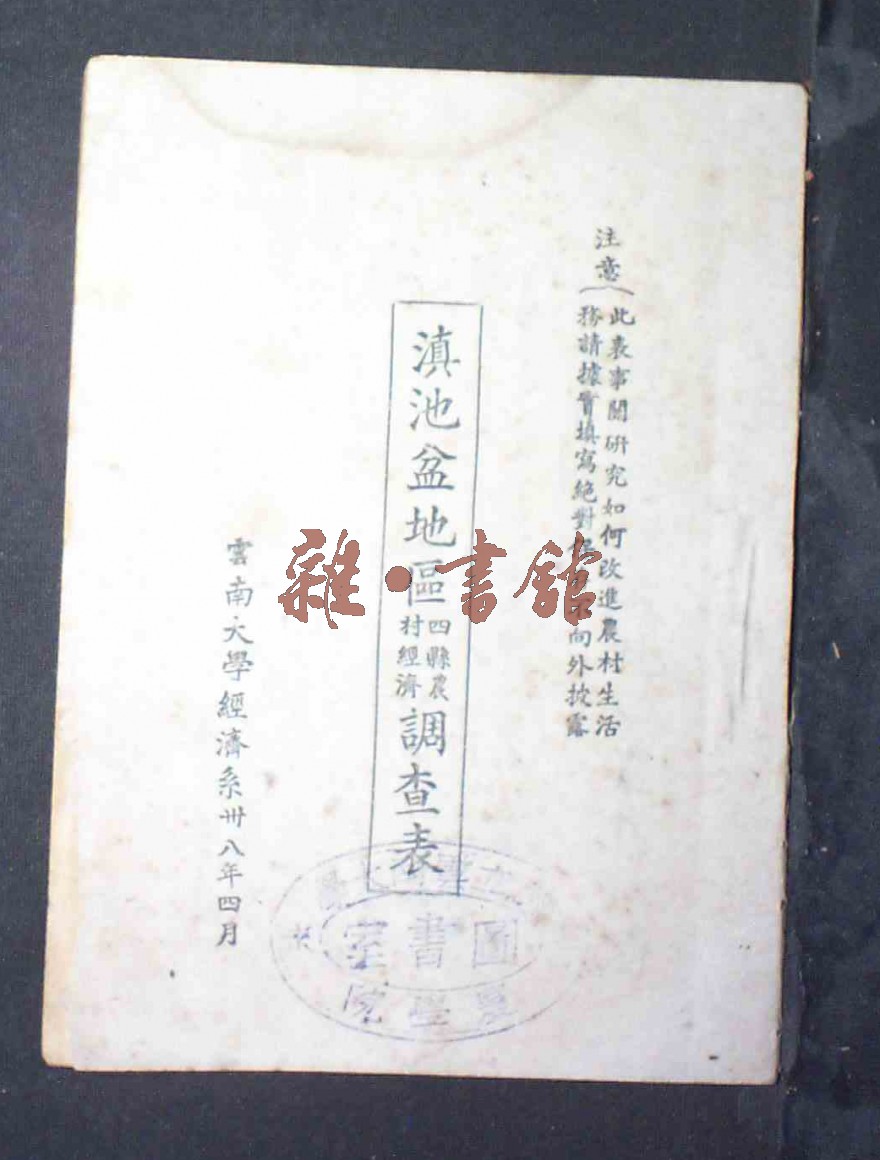 注意
此表事關研究如何改進農村生活
務請據實填寫絕對 不向外披露
滇池盆地區四縣農村經濟調查表
雲南大學經濟系卅八年四月
雜·書館
圖書室
農學院